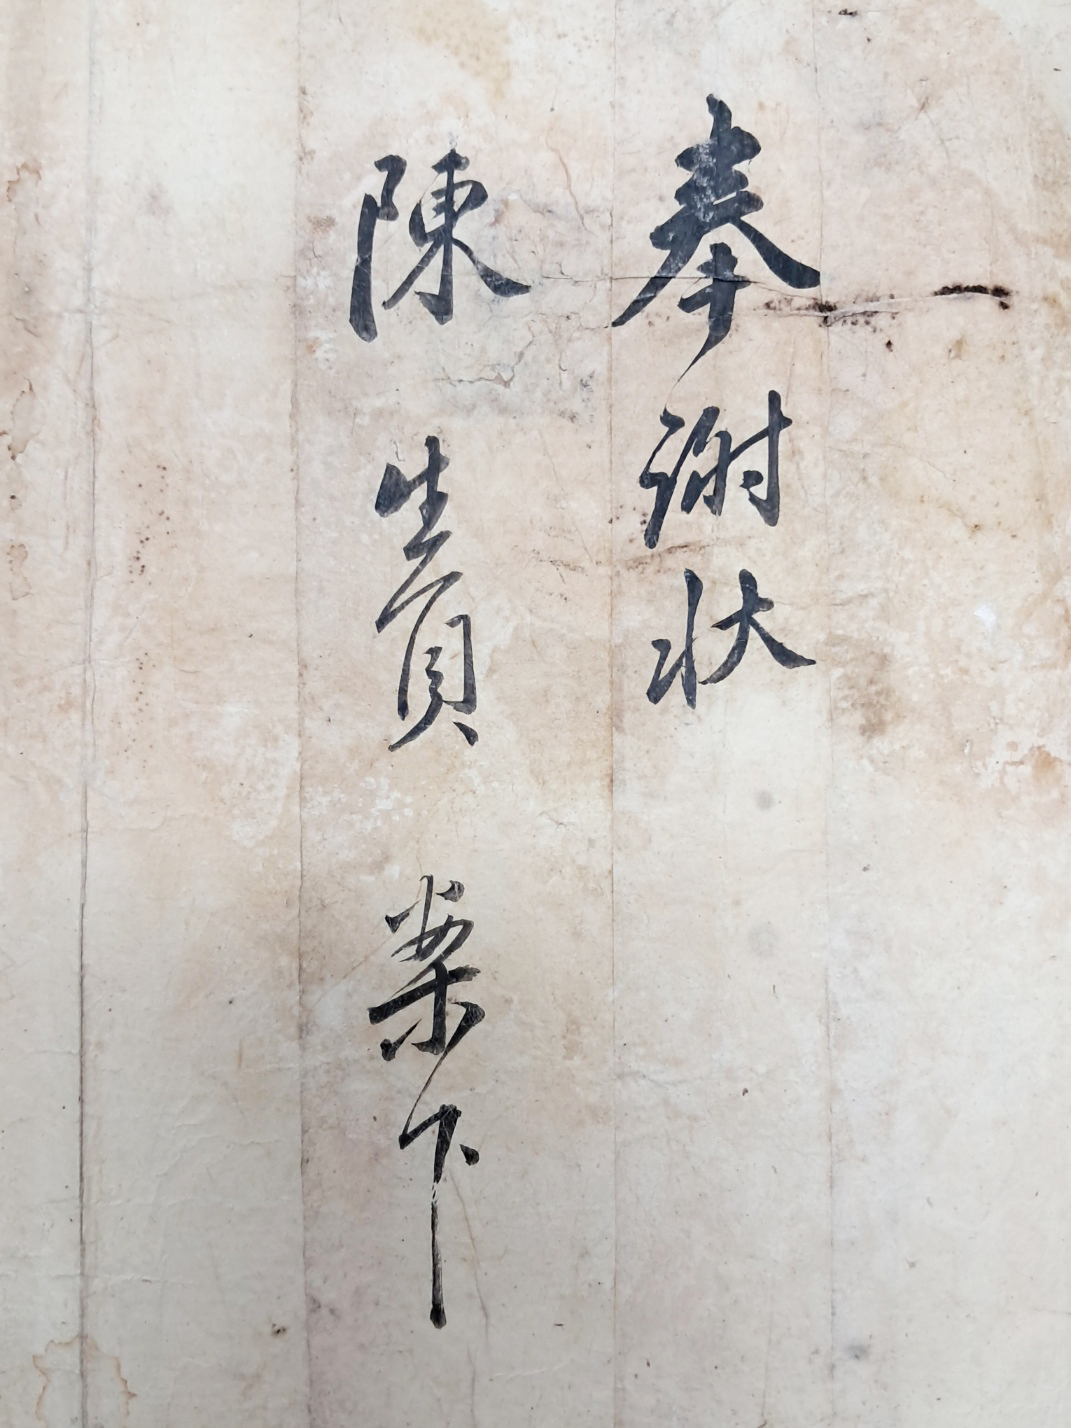 奉謝狀
陳生員 案下